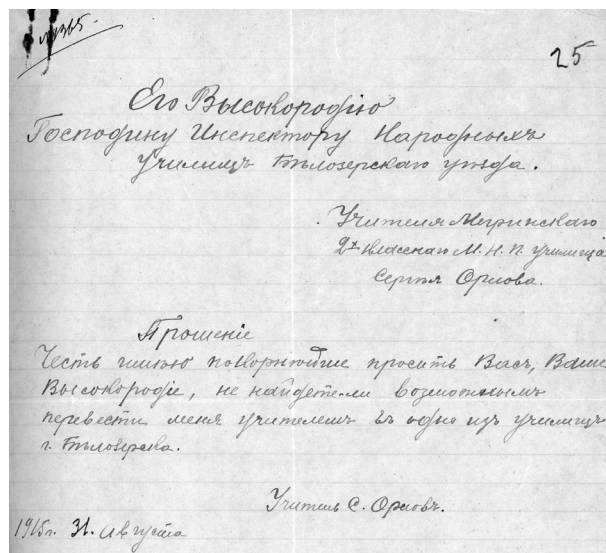 №1365
25
Его Высокородію
Господину Инспектору Народныхъ
Училищъ Бѣлозерскаго уѣзда.
Учителя Мегринскаго
2х класснаго М. Н. П. училища
Сергѣя Орлова.
Прошеніе
Честь имѣю покорнѣйше просить Васъ, Ваше
Высокородіе, не найдете ли возможнымъ
перевести меня учителемъ въ одно изъ училищъ
г. Бѣлозерска.
Учитель С. Орловъ.
1915 г. 31. Августа